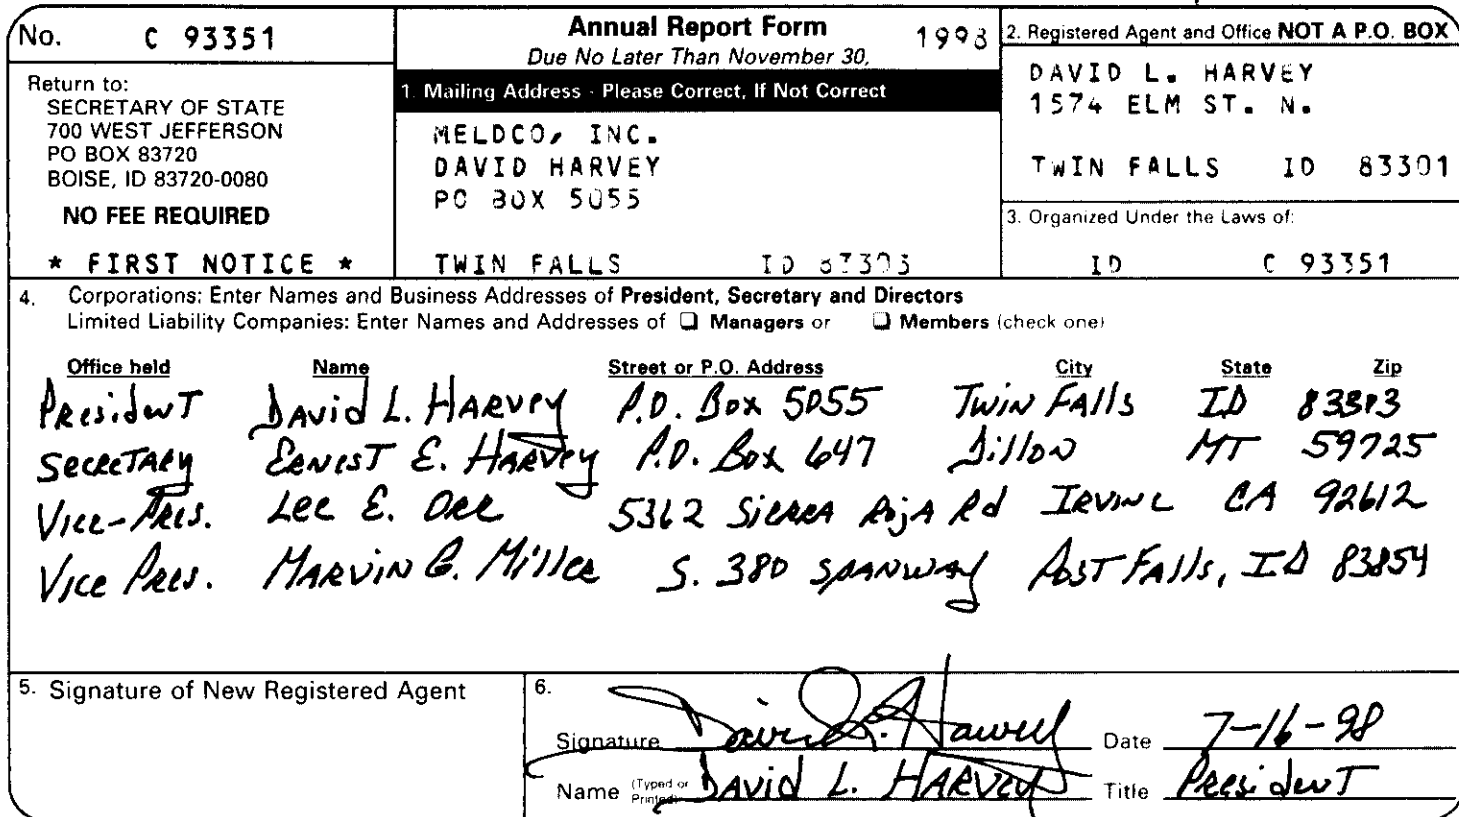 No. C 93351
Return to:
SECRETARY OF STATE
700 WEST JEFFERSON
PO BOX 83720
BOISE, ID 83720-0080
NO FEE REQUIRED
* FIRST NOTICE *
Annual Report Form 1998
Due No Later Than November 30,
1. Mailing Address - Please Correct, If Not Correct
MELDCO, INC.
DAVID HARVEY
PO BOX 5055
TWIN FALLS ID 83303
2. Registered Agent and Office NOT A P.O. BOX
DAVID L. HARVEY
1574 ELM ST. N.
TWIN FALLS ID 83301
3. Organized Under the Laws of:
ID C 93351
4. Corporations: Enter Names and Business Addresses of President, Secretary and Directors
Limited Liability Companies: Enter Names and Addresses of ❑ Managers or ❑ Members (check one)
Office held Name Street or P.O. Address City State Zip
President David L. Harvey P.O. Box 5055 Twin Falls ID 83303
Secretary Ernest E. Harvey P.O. Box 647 Dillon MT 59725
Vice-Pres. Lee E. Orr 5362 Sierra Roja Rd Irvine CA 92612
Vice Pres. Marvin G. Miller S. 380 Post Falls, ID 83854
5. Signature of New Registered Agent
6.
Signature David L. Harvey Date 7-16-98
Name (Typed or Printed) David L. Harvey Title President